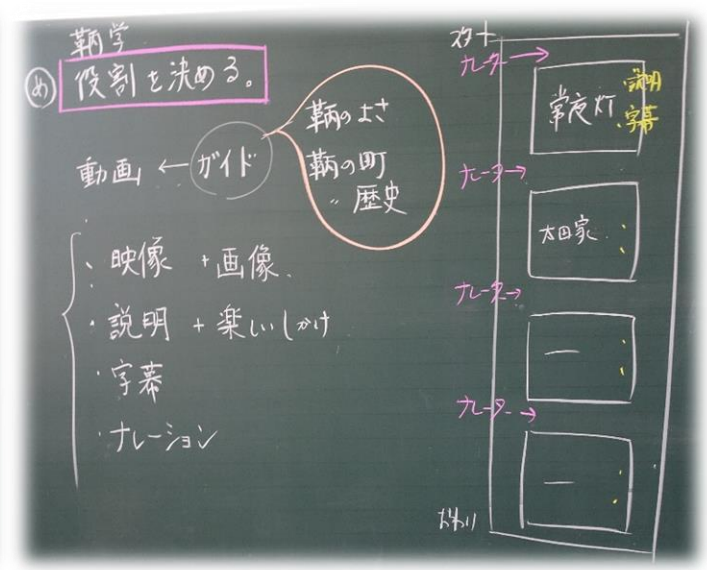 鞆学
め 役割を決める。
動画 ← ガイド
鞆のよさ
鞆の町
〃 歴史
・映像 + 画像
・説明 + 楽しいしかけ
・字幕
・ナレーション
スタート
ナレーター→
常夜灯
・説明
・字幕
ナレーター→
太田家
ナレーター→
ー
ナレーター→
ー
おわり